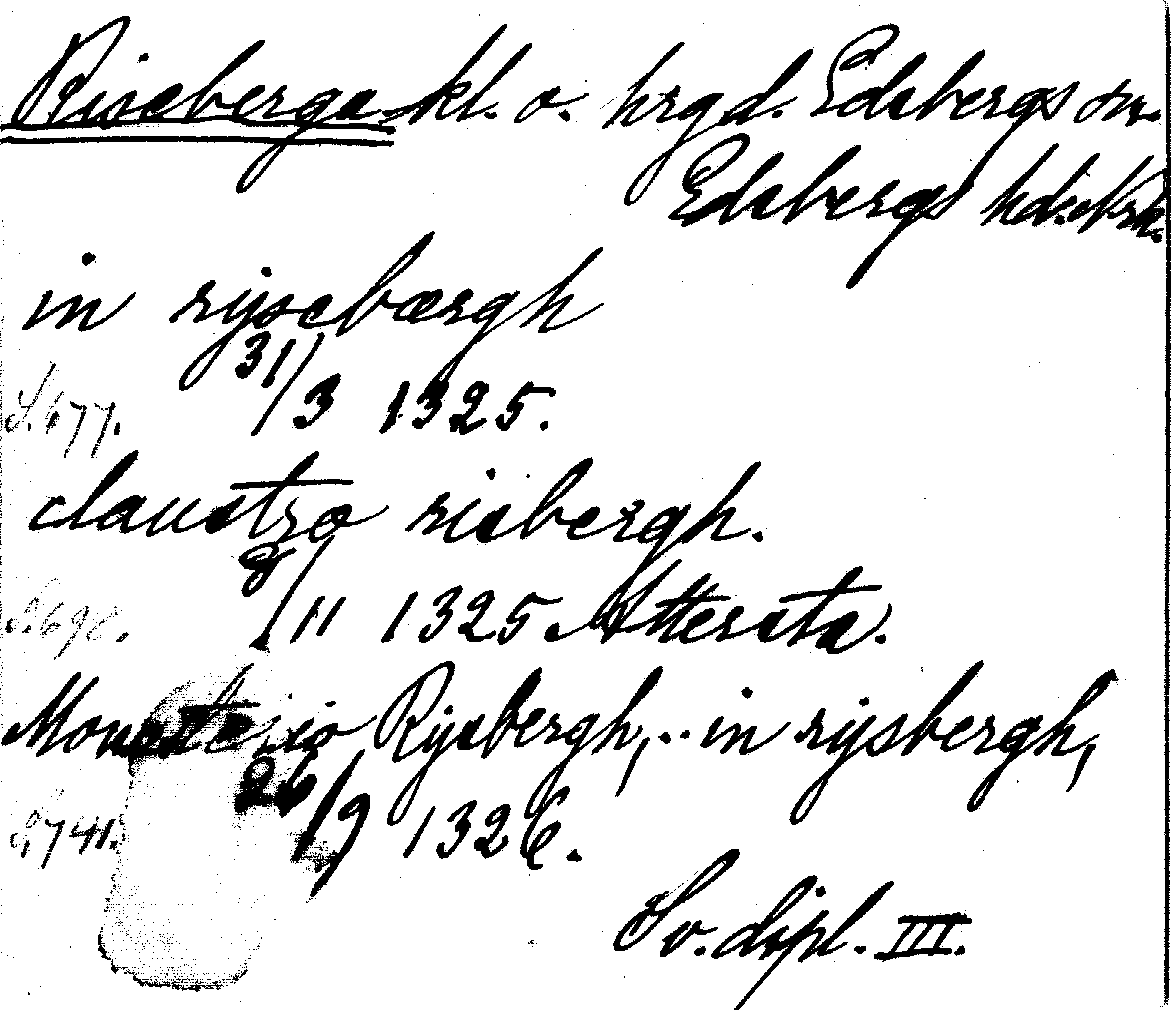 Riseberga kl. o. hrgd. Edsbergs sn.
Edsbergs hd. Nrk.
in rysebærgh
31/3 1325.
S. 677.
claustro risbergh.
8/11 1325 Attersta.
S. 698.
Monasterio Rysbergh, .. in rysbergh,
26/9 1326.
S. 741.
Sv. dipl. III.